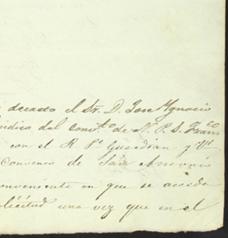 decasto el Sr. D. José Ygnacio
indico del conv.to de N. P. S. Fran.co
con el R. P.e Guardian y V.l
Convento de San Antonio
conveniente en que se acceda
solicitud una vez que en el